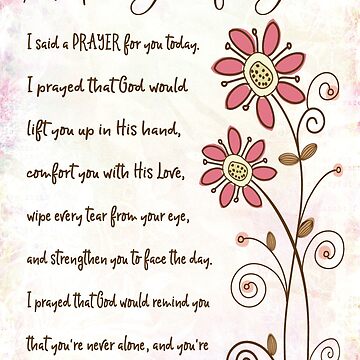 I said a PRAYER for you today.
I prayed that God would
lift you up in His hand,
comfort you with His Love,
wipe every tear from your eye,
and strengthen you to face the day.
I prayed that God would remind you
that you're never alone, and you're